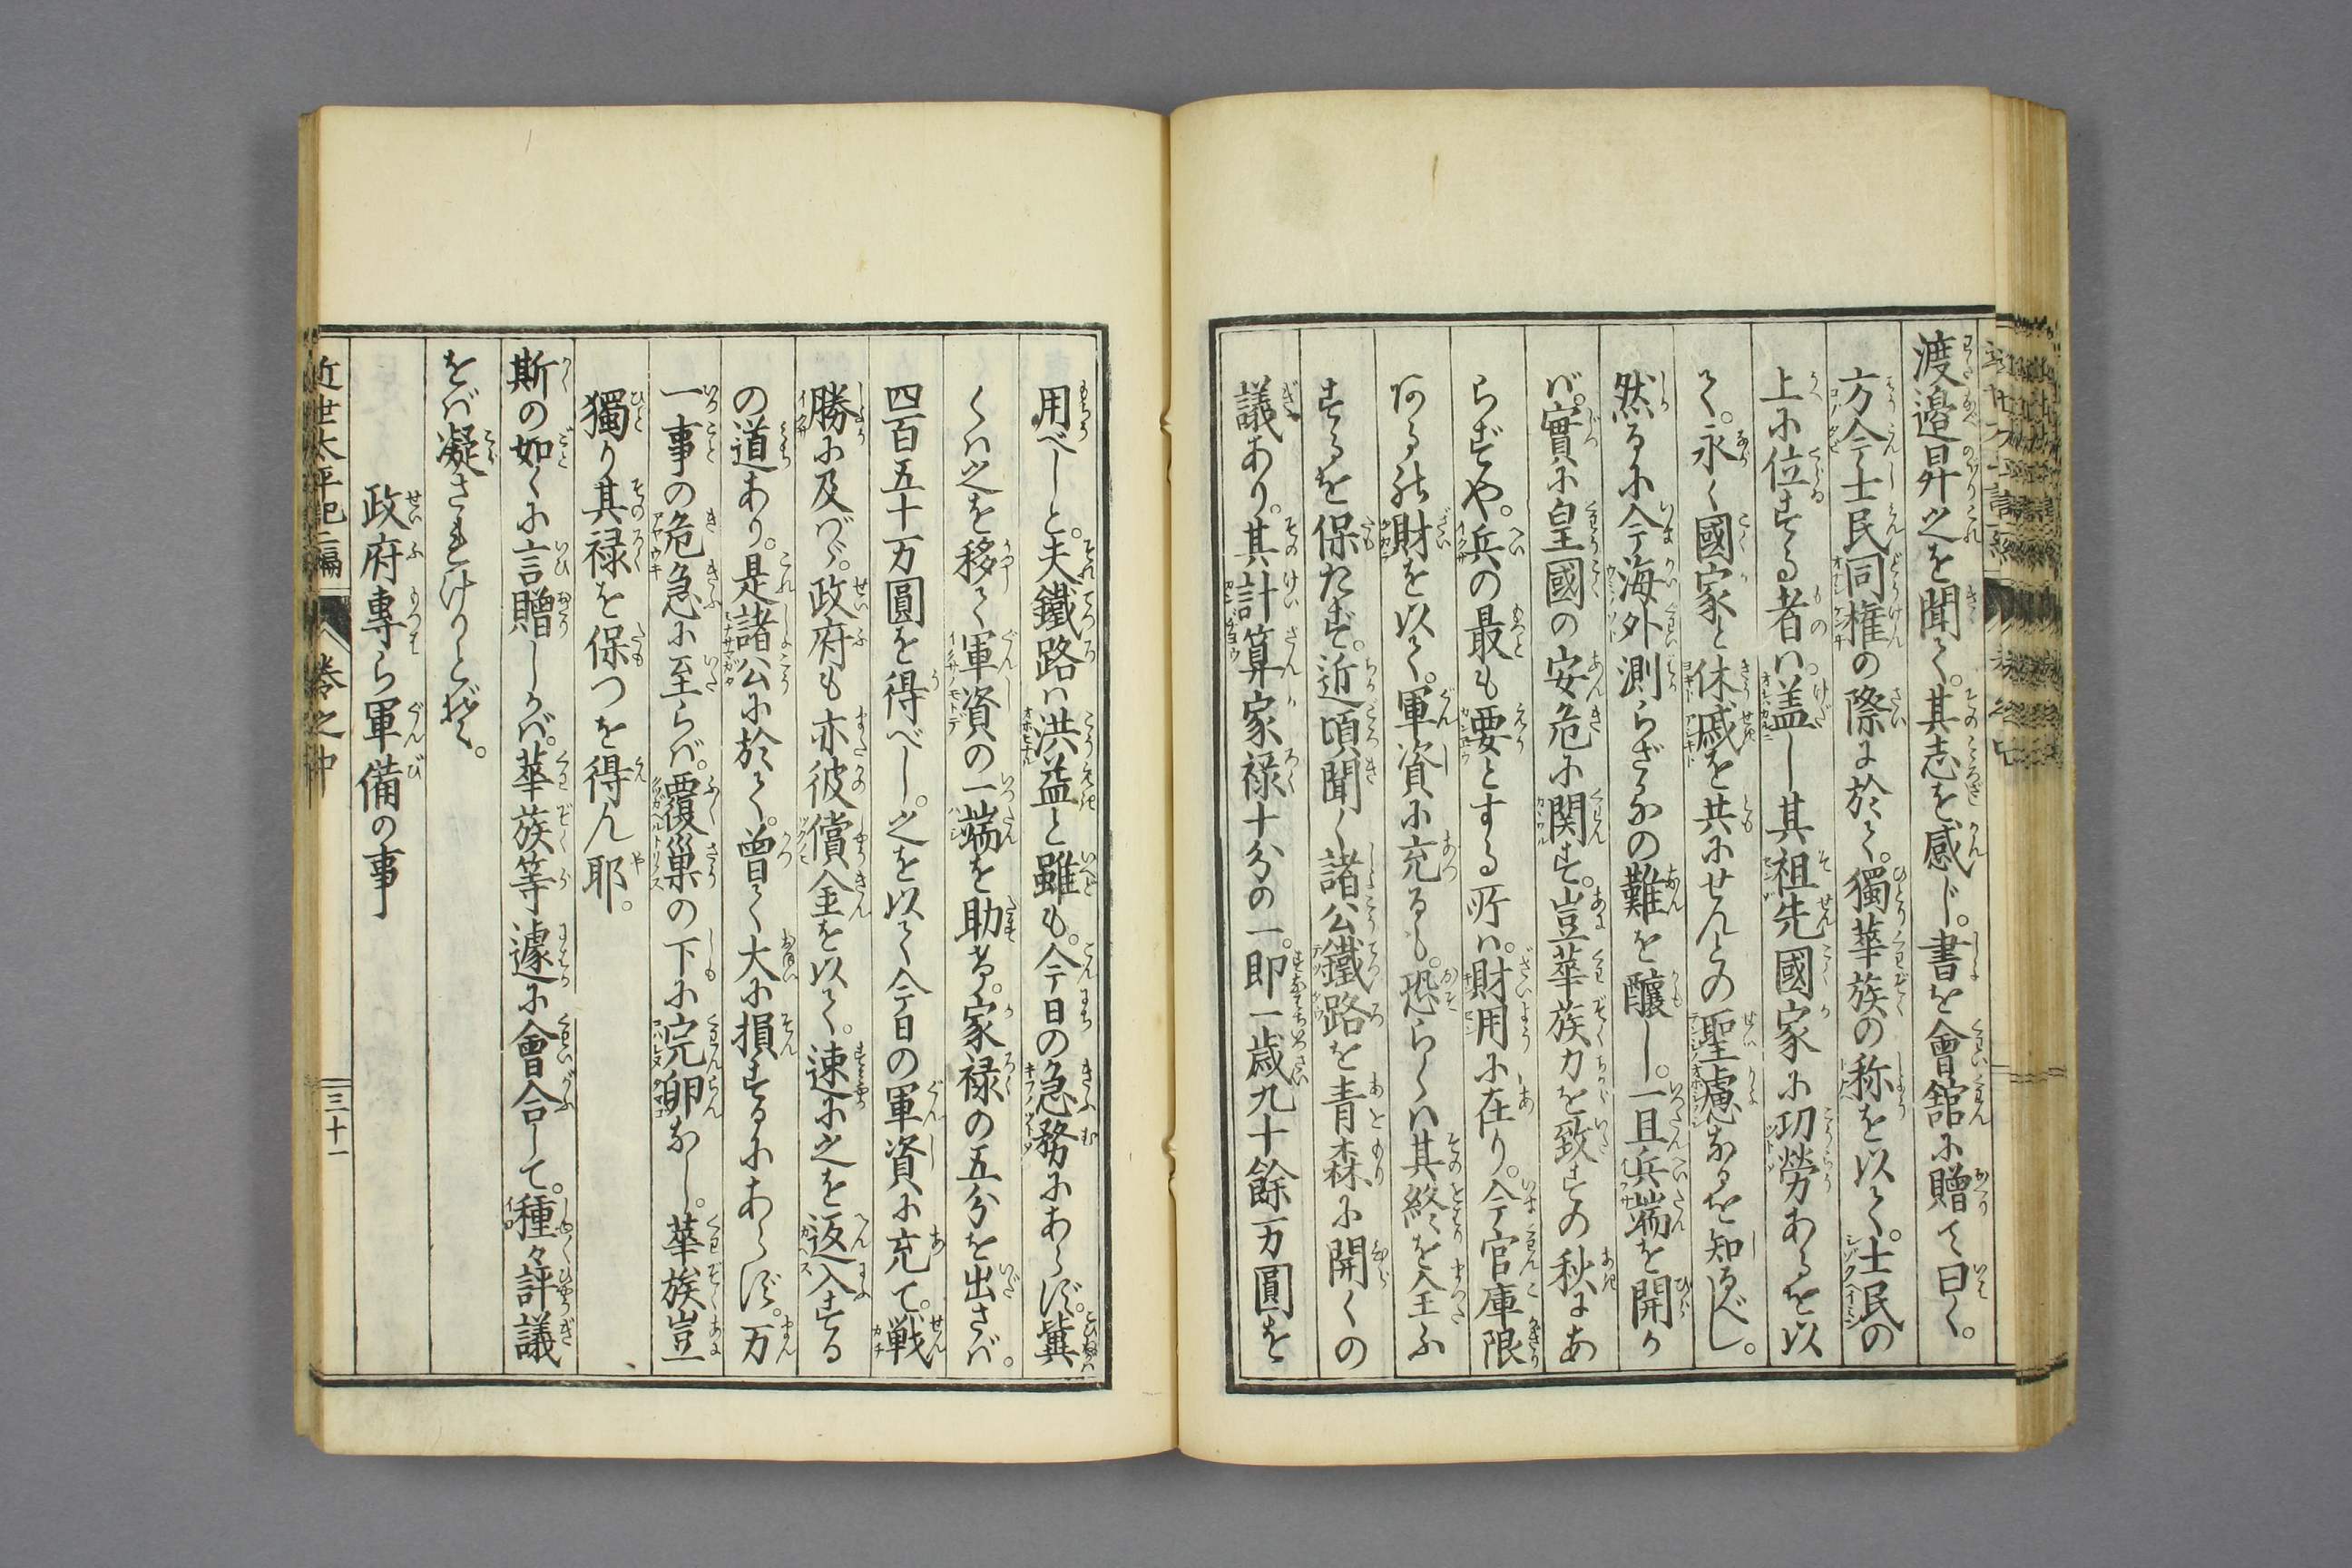 渡邉昇之を聞て。其志を感じ。書を會舘に贈て曰く。
方今士民同権の際に於て。獨華族の称を以て。士民の
上に位する者ハ。盖し其祖先國家に功勞あるを以
て。永く國家と休戚を共にせんとの聖慮なるを知るべし。
然るに今海外測らざるの難を醸し。一旦兵端を開か
バ。實に皇國の安危に関す。豈華族力を致すの秋にあ
らずや。兵の最も要とする所ハ。財用に在り。今官庫限
ある財を以て。軍資に充るも。恐らくハ其終を全ふ
するを保たず。近頃聞く諸公鐵路を青森に開くの
議あり。其計算家禄十分の一。即一歳九十餘万圓を
用べしと。夫鐵路ハ洪益と雖も。今日の急務にあらず。冀
くハ之を移て軍資の一端を助け。家禄の五分を出さバ。
四百五十万圓を得べし。之を以て今日の軍資に充て。戦
勝に及バゞ。政府も亦彼償金を以て。速に之を返入する
の道あり。是諸公に於て。曾て大に損するにあらず。万
一事の危急に至らバ。覆巣の下に完卵なし。華族豈
獨り其禄を保つを得ん耶。
斯の如くに言贈しかバ。華族等遽に會合して。種々評議
をバ凝されけりとぞ。
政府專ら軍備の事
近世太平記二編 巻之中 三十一